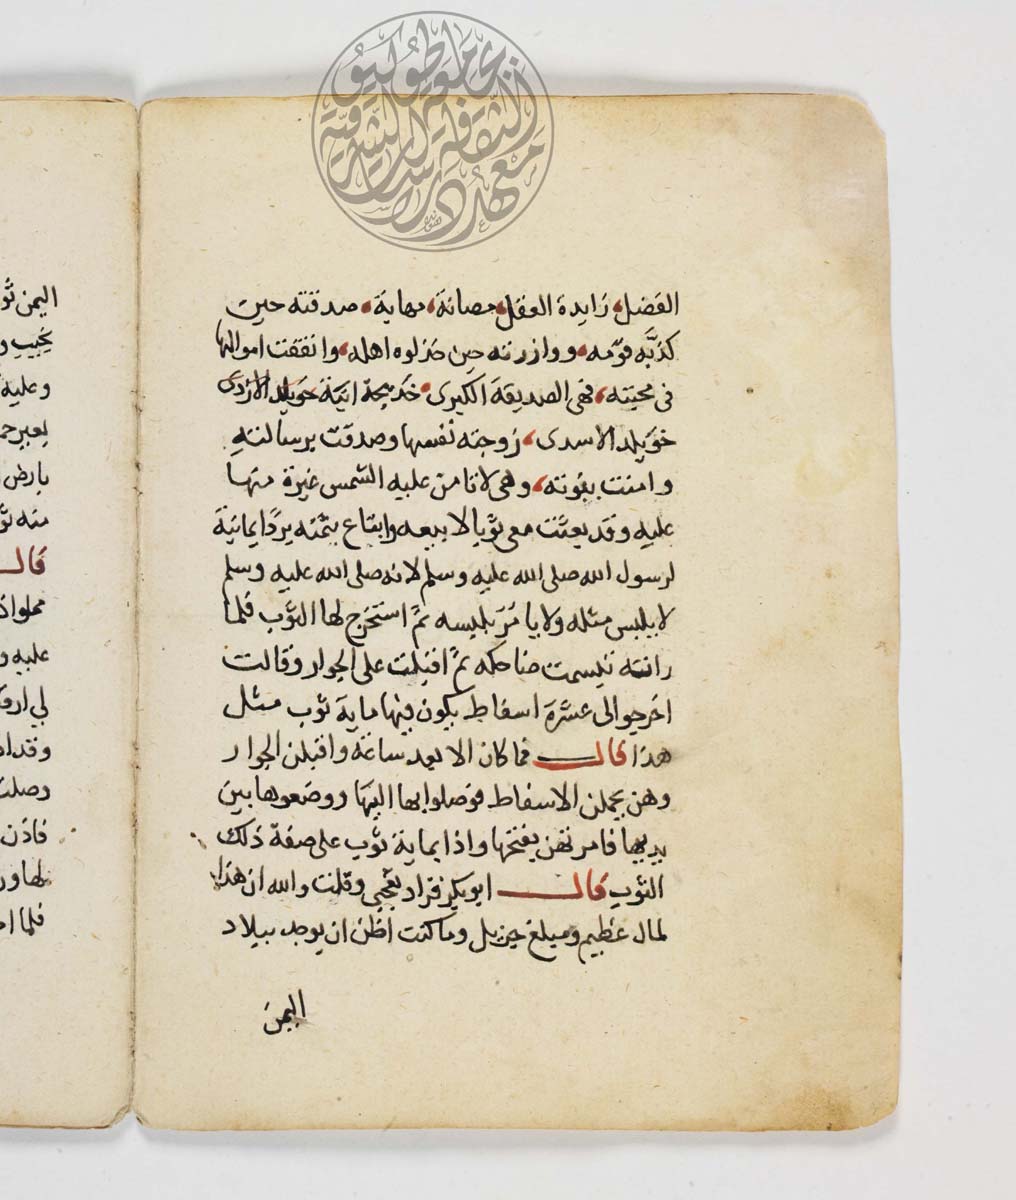 الفضل، زايدة العقل، مصانة، مهابة، صدقته حين
كذبه قومه، ووازرته حين خزلوه اهله، وانفقت اموالها
في محبته، فهي الصديقة الكبرى، خديجة ابنة خويلد الازدي
خويلد الاسدي، زوجته نفسها وصدقت برسالته
وامنت بنبوته، وهي لا تامن عليه الشمس غيرة منها
عليه وقد بعثت معي ثوبا لابيعه وابتاع بثمنه بردا يمانية
لرسول الله صلى الله عليه وسلم لانه صلى الله عليه وسلم
لا يلبس مثله ولا يامر بلبسه ثم استخرج لها الثوب فلما
راته تبسمت ضاحكه ثم اقبلت على الجوار وقالت
اخرجوا لي عشرة اسفاط يكون فيها ماية ثوب مثل
هذا قال فما كان الا بعد ساعة واقبلن الجوار
وهن يحملن الاسفاط فوصلوا بها اليها ووضعوها بين
يديها فامرتهن بفتحها واذا بماية ثوب على صفة ذلك
الثوب قال ابو بكر فزاد تعجبي وقلت والله ان هذا
لمال عظيم ومبلغ جزيل وما كنت اظن ان يوجد ببلاد
اليمن
اليمن
وعليه
بارض
منه
قال
عليه
وصلت
فاذن
فلما
جامعة طوكيو
معهد دراسات الثقافة الشرقية